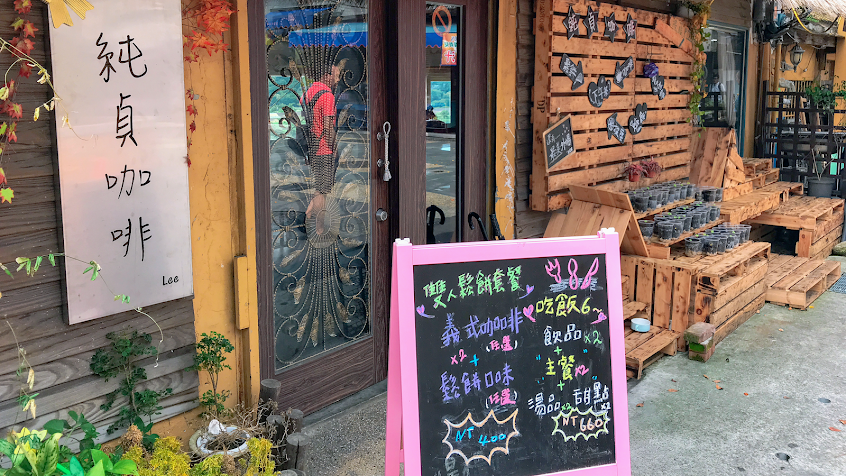 純
貞
咖
啡
Lee
雙人鬆餅套餐
義式咖啡
x2 (任選)
+
鬆餅口味
(任選)
NT 400
吃飯6~
飲品x2
+
主餐x2
+
湯品x2 甜點x2
NT 660